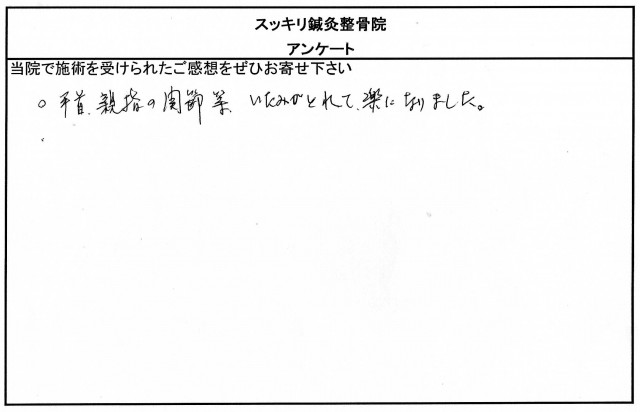 スッキリ鍼灸整骨院
アンケート
当院で施術を受けられたご感想をぜひお寄せ下さい
○ 手首、親指の関節等、いたみがとれて、楽になりました。